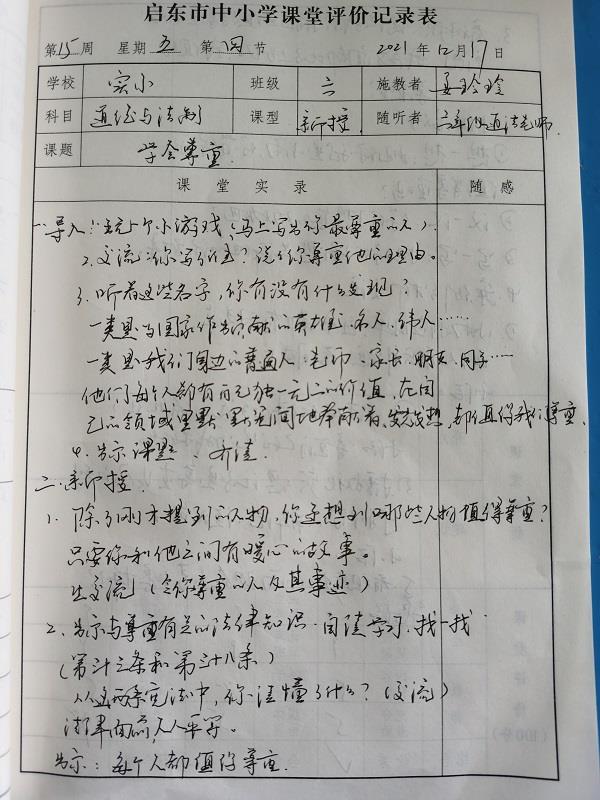 启东市中小学课堂评价记录表
第15周 星期五 第四节 2021年12月17日
学校 实小 班级 六 施教者 姜玲玲
科目 道德与法制 课型 新授 随听者 六年级道法老师
课题 学会尊重
课堂实录 随感
一、导入:1.玩个小游戏(马上写出你最尊重的人)
2.交流:你写什么?说说你尊重他的理由。
3.听着这些名字,你有没有什么发现?
一类是为国家作出贡献的英雄、名人、伟人……
一类是我们身边的普通人:老师、家长、朋友、同学……
他们每个人都有自己独一无二的价值,在自
己的领域里默默无闻地奉献着,都值得我们尊重。
4.出示课题、齐读。
二、新授
1.除了刚才提到的人物,你还想到哪些人物值得尊重?
只要你和他之间有暖心的故事。
生交流(令你尊重的人及其事迹)
2.出示与尊重有关的法律知识.自读学习.找一找
(第卅三条和第三十八条)
从这两条宪法中,你读懂了什么?(交流)
法律面前,人人平等。
出示:每个人都值得尊重.